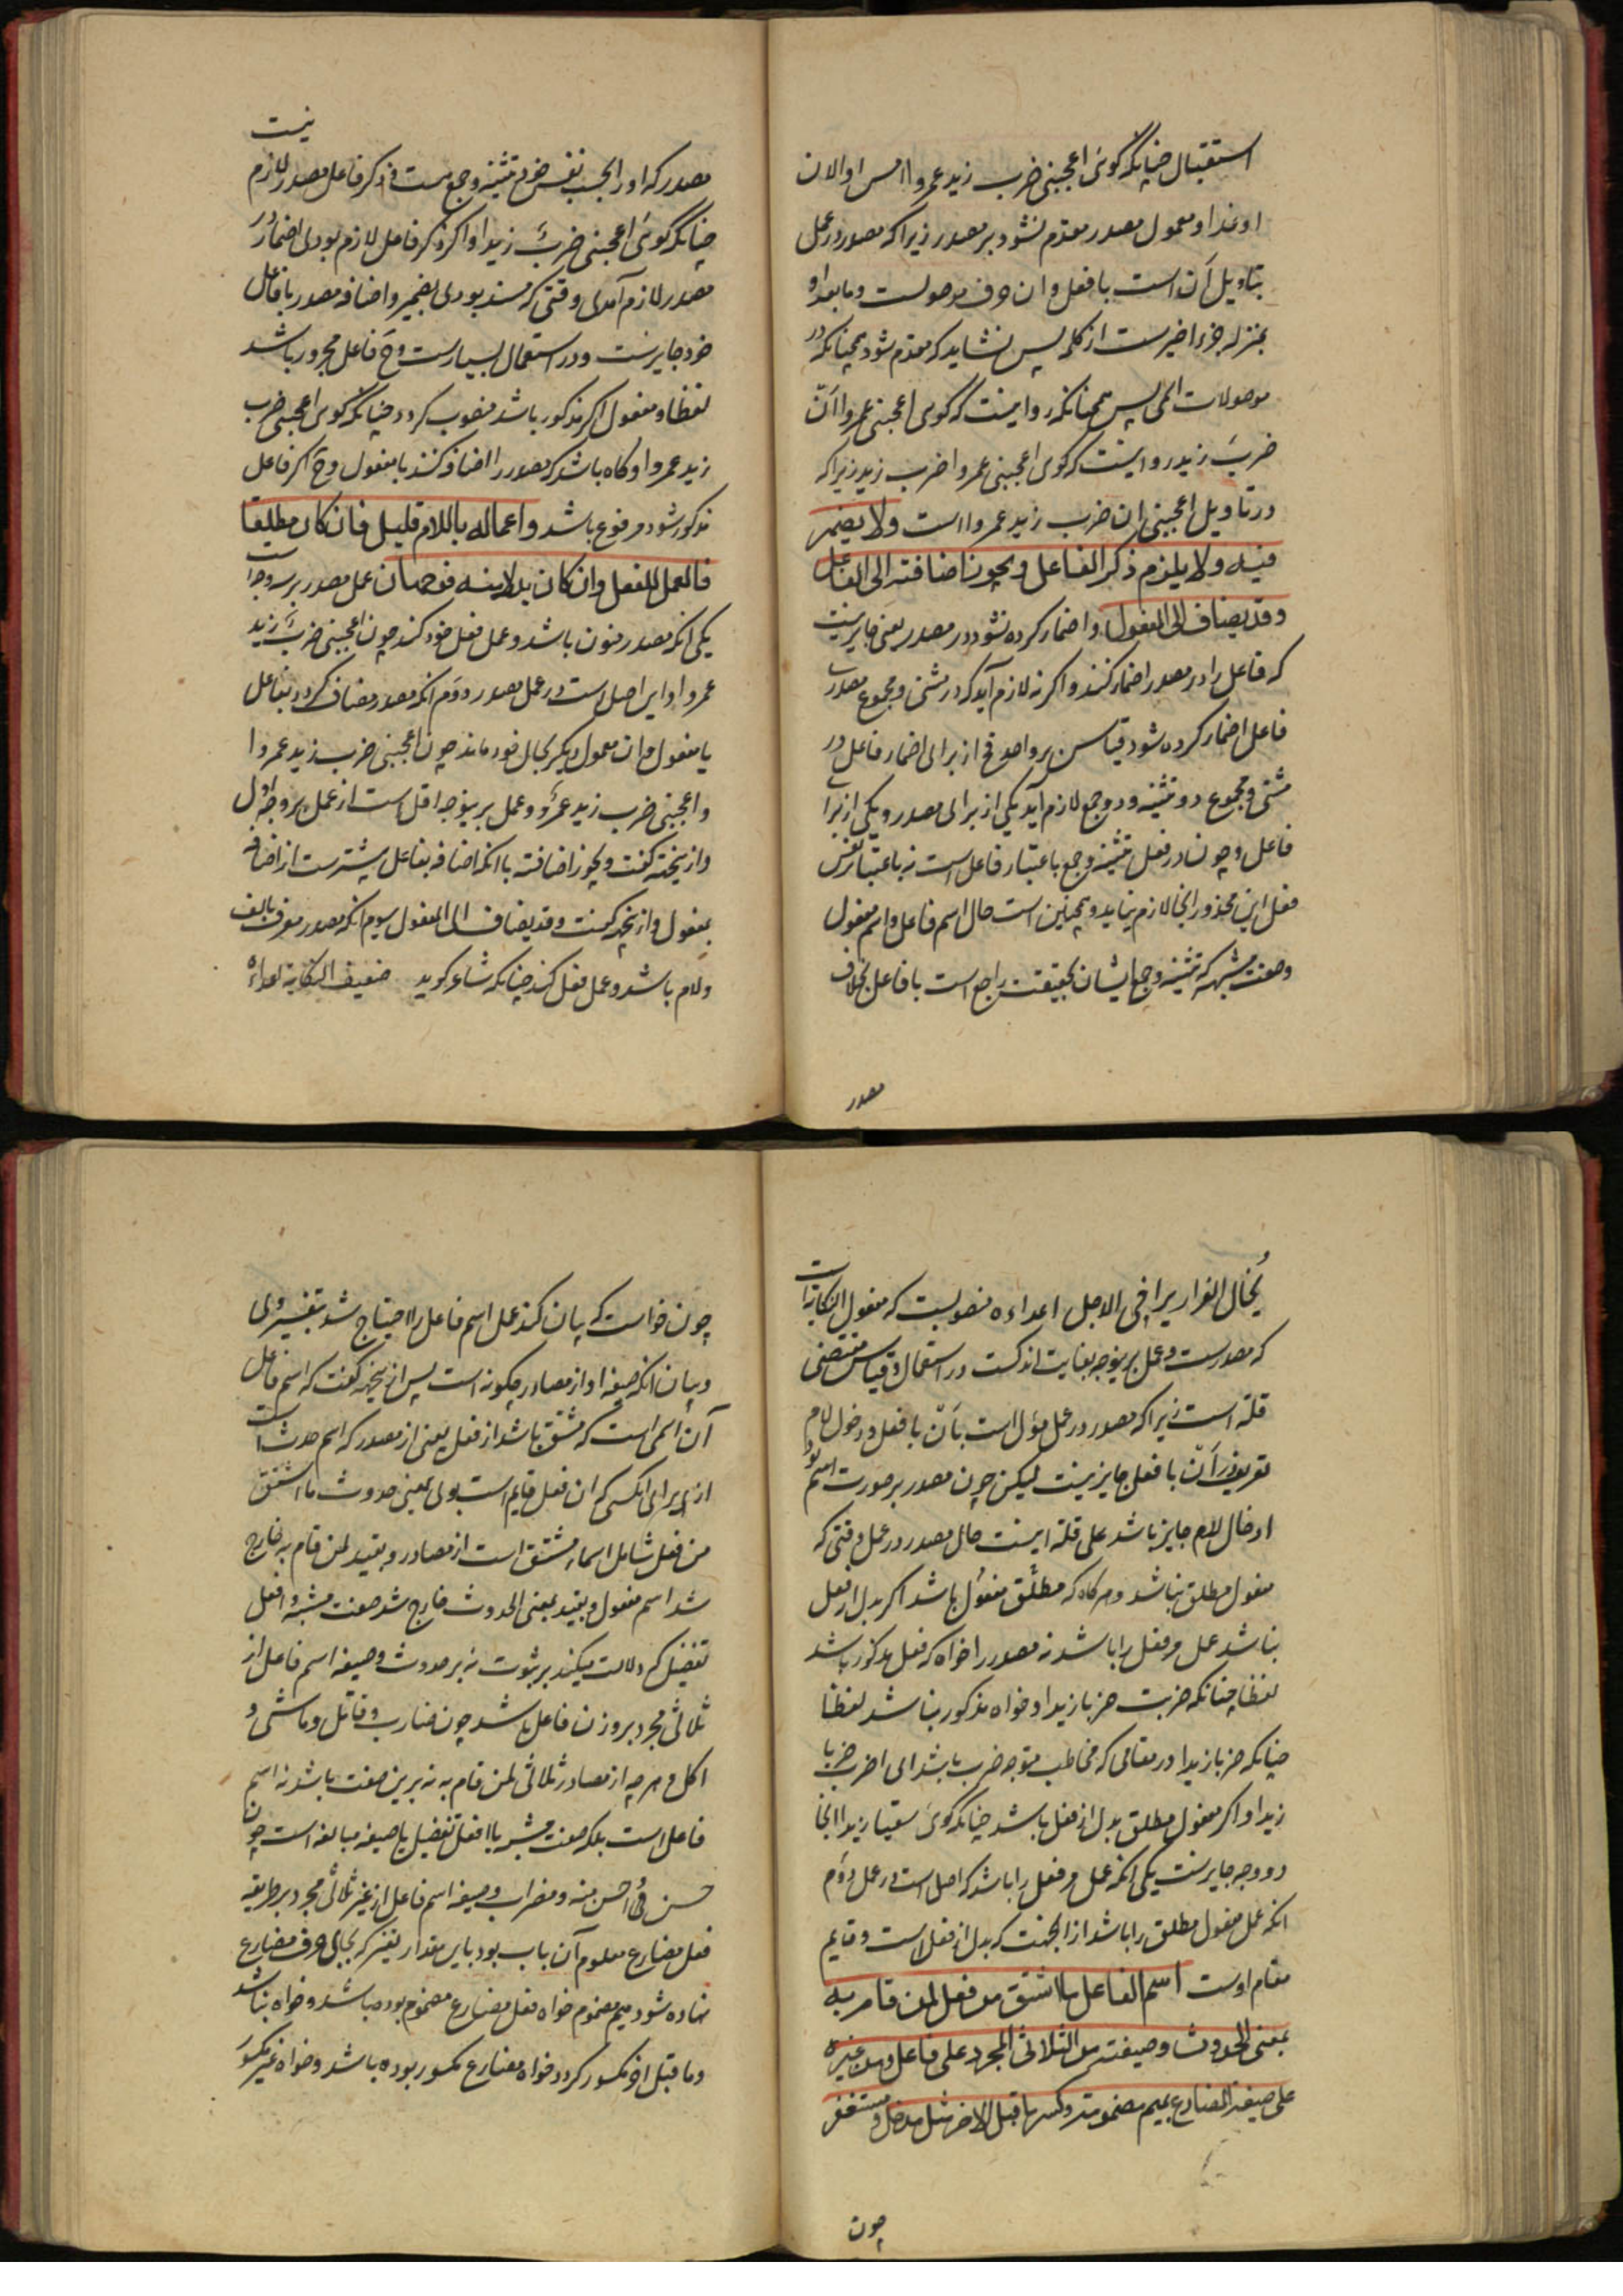 استقبال چنانکه گوئی اعجبنی ضرب زید عمروا امس او الان
او غدا و معمول مصدر مقدم نشود بر مصدر زیرا که مصدر در عمل
بتاویل اَن است با فعل و ان حرف موصولست و مابعد او
بمنزله جزء اخیرست از کلمه پس نشاید که مقدم شود همچنانکه در
موصولات اسمی پس همچنانکه روا نیست که گوی اعجبنی عمروا اَن
ضربَ زید روا نیست که گوی اعجبنی عمروا ضرب زید زیرا که
در تاویل اعجبنی ان ضرب زید عمروا است ولا یضمر
فیه ولا یلزم ذکر الفاعل و یجوز اضافته الی الفاعل
وقد یضاف الی المفعول و اضمار کرده نشود در مصدر یعنی جایز نیست
که فاعل را در مصدر اضمار کنند و اکر نه لازم آید که در مثنی و مجموع مصدر
فاعل اضمار کرده شود قیاس بر واحد فح از برای اضمار فاعل در
مثنی و مجموع دو تثنیه و دو جمع لازم آید یکی از برای مصدر و یکی از برای
فاعل و چون در فعل تثنیه و جمع باعتبار فاعل است نه باعتبار نفس
فعل این محذور انجا لازم نیاید و همچنین است حال اسم فاعل و اسم مفعول
وصفت مشبهه که تثنیه و جمع ایشان بحقیقت راجع است با فاعل بخلاف
مصدر
نیست
مصدر که او را بحسب نفس خود تثنیه و جمع هست و ذکر فاعل مصدر لازم
چنانکه گوئی اعجبنی ضربٌ زیدا و اکر ذکر فاعل لازم بودی اضمار در
مصدر لازم آمدی وقتی که مسند بودی بضمیر و اضافه مصدر با فاعل
خود جایزست و در استعمال بسیارست و ح فاعل مجرور باشد
لفظا و مفعول اکر مذکور باشد منصوب کردد چنانکه گوی اعجبنی ضرب
زید عمروا و کاه باشد که مصدر را اضافه کنند با مفعول و ح اکر فاعل
مذکور شود مرفوع باشد واعماله باللام قلیل فان کان مطلقا
فالعمل للفعل وان کان بدلا منه فوجهان عمل مصدر بر سه وجه است
یکی انکه مصدر منون باشد و عمل فعل خود کند چون اعجبنی ضربٌ زید
عمروا و این اصل است در عمل مصدر دوّم انکه مصدر مضاف کردد بفاعل
یا مفعول و ان معمول دیکر بحال خود ماند چون اعجبنی ضرب زید عمروا
و اعجبنی ضرب زید عمرٌو و عمل برینوجه اقل است از عمل بر وجه اول
و ازینجهة کفت و یجوز اضافته با انکه اضافه بفاعل بیشترست از اضافه
بمفعول و ازینجهة کفت و قد یضاف الی المفعول سیوم انکه مصدر معرف بالف
ولام باشد و عمل فعل کند چنانکه شاعر کوید ضعیف النکایة اعداءه
یُخال الفرار یراخی الاجل اعداءه منصوبست که مفعول النکایة است
که مصدرست و عمل برینوجه بغایت اندکست در استعمال و قیاس مقتضی
قلة است زیرا که مصدر در عمل مؤل است باَن با فعل و دخول لام
تعریف بر اَن با فعل جایز نیست لیکن چون مصدر بر صورت اسم بود
ادخال لام جایز باشد علی قلة اینست حال مصدر در عمل وقتی که
مفعول مطلق نباشد و هر کاه که مطلق مفعول باشد اکر بدل از فعل
نباشد عمل مر فعل را باشد نه مصدر را خواه که فعل مذکور باشد
لفظا چنانکه ضربت ضربا زیدا و خواه مذکور نباشد لفظا
چنانکه ضربا زیدا در مقامی که مخاطب متوجه ضرب باشد ای اضرب ضربا
زیدا و اکر مفعول مطلق بدل از فعل باشد چنانکه گوئی سقیا زیدا انجا
دو وجه جایزست یکی انکه عمل مر فعل را باشد که اصل است در عمل دوّم
انکه عمل مفعول مطلق را باشد از انجهت که بدل از فعل است و قایم
مقام اوست اسم الفاعل ما اشتق من فعل لمن قام به
بمعنی الحدوث و صیغته من الثلاثی المجرد علی فاعل ومن غیره
علی صیغة المضارع بمیم مضمومة و کسر ما قبل الاخر مثل مدخل و مستغفر
چون
چون خواست که بیان کند عمل اسم فاعل را احتیاج شد بتفسیر وی
و بیان انکه صیغه او از مصادر چکونه است پس ازینجهة کفت که اسم فاعل
آن اسمی است که مشتق باشد از فعل یعنی از مصدر که اسم حدث است
از برای انکسی که ان فعل قایم است بوی بمعنی حدوث ما اشتق
من فعل شامل اسماء مشتق است از مصادر و بقید لمن قام به خارج
شد اسم مفعول و بقید بمعنی الحدوث خارج شد صفت مشبه و افعل
تفضیل که دلالت میکند بر ثبوت نه بر حدوث و صیغه اسم فاعل از
ثلاثی مجرد بر وزن فاعل باشد چون ضارب و قاتل و ماشی و
اکل و هر چه از مصادر ثلاثی لمن قام به نه برین صفت باشد نه اسم
فاعل است بلکه صفت مشبه یا افعل تفضیل یا صیغه مبالغه است چون
حسن و احسن منه و مضراب و صیغه اسم فاعل از غیر ثلاثی مجرد بر طریقه
فعل مضارع معلوم آن باب بود باین مقدار تغییر که بجای حرف مضارع
نهاده شود میم مضموم خواه فعل مضارع مضموم بوده باشد و خواه نباشد
و ما قبل اخر مکسور کردد خواه مضارع مکسور بوده باشد و خواه غیر مکسور